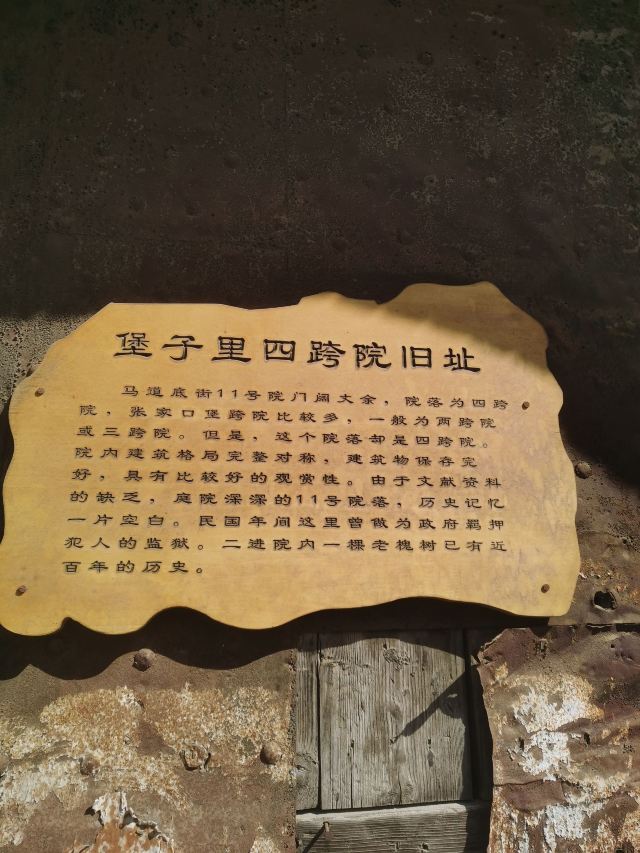 堡子里四跨院旧址
马道底街11号院门阔大余，院落为四跨
院，张家口堡跨院比较多，一般为两跨院
或三跨院。但是，这个院落却是四跨院。
院内建筑格局完整对称，建筑物保存完
好，具有比较好的观赏性。由于文献资料
的缺乏，庭院深深的11号院落，历史记忆
一片空白。民国年间这里曾做为政府羁押
犯人的监狱。二进院内一棵老槐树已有近
百年的历史。